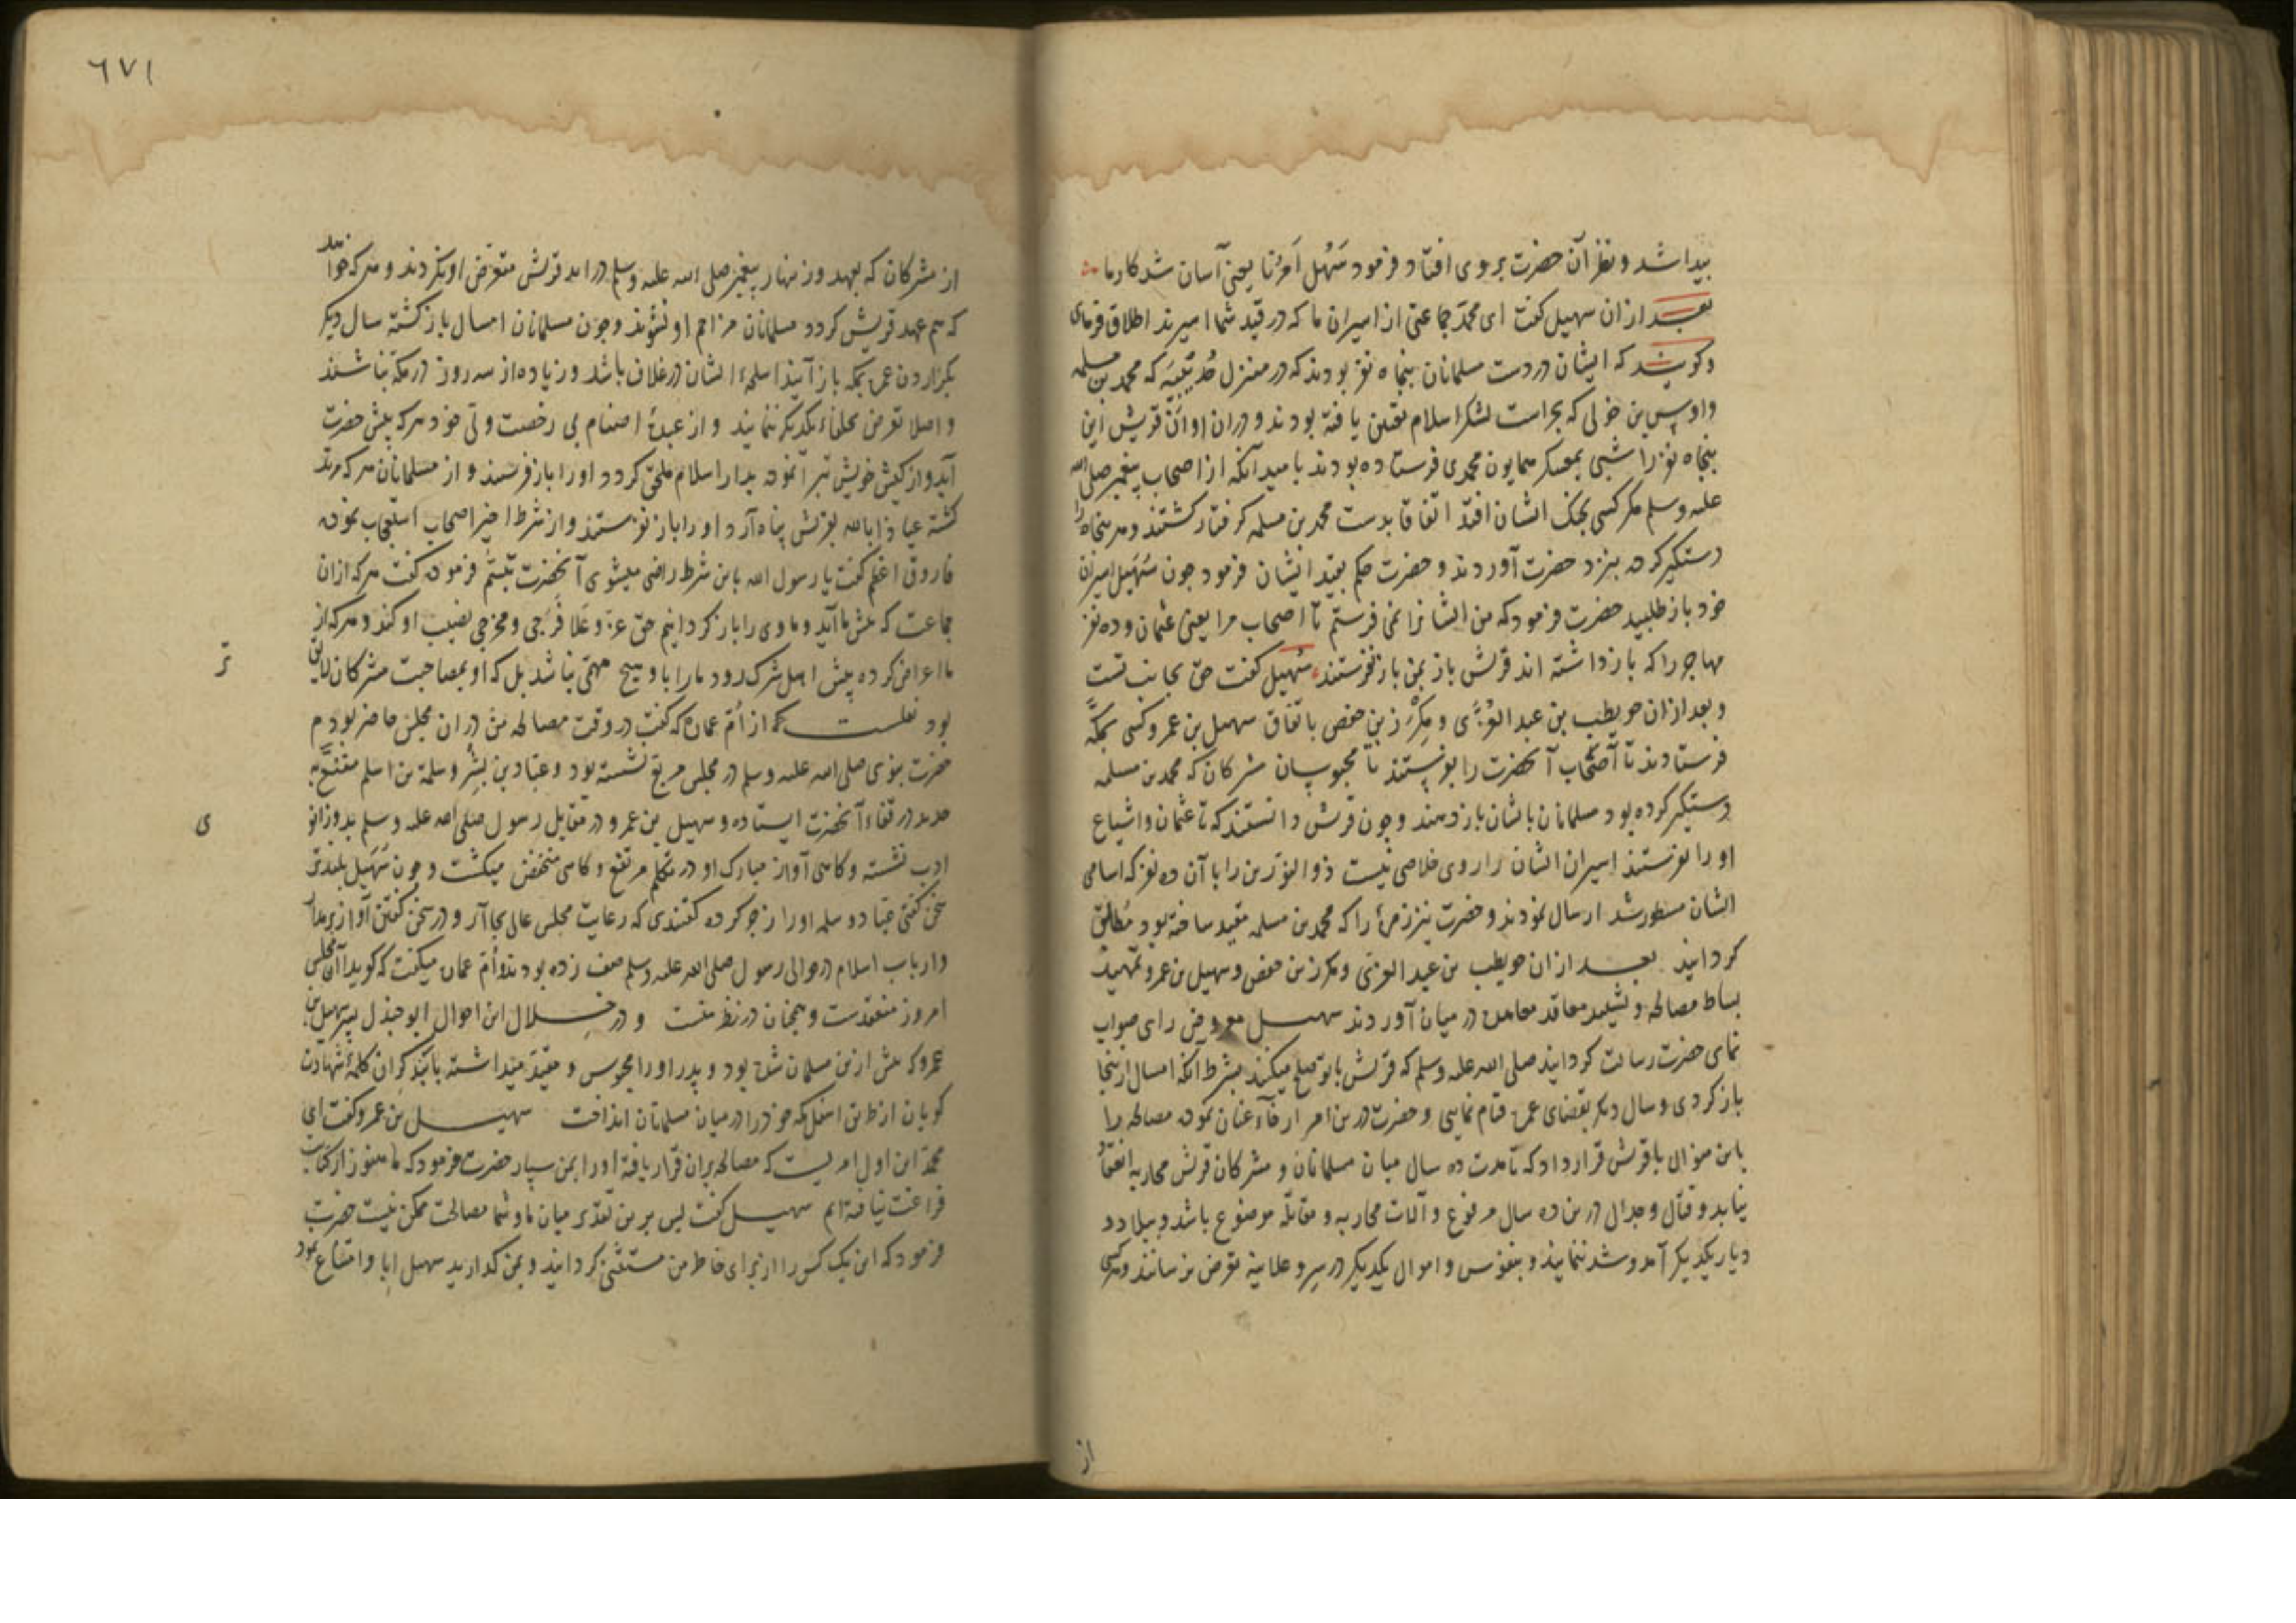 پیدا شد و نظر آن حضرت بر وی افتاد فرمود سَهُل اَمرُنا یعنی آسان شد کار ما
بعد ازان سهیل کفت ای محمد جماعتی از اسیران ما که در قید شما اسیرند اطلاق فرمای
وکویند که ایشان در دست مسلمانان پنجاه نفر بودند که در منزل حُدَیْبیَه که محمد بن مسلمه
واوس بن خولی که بحراست لشکر اسلام تعین یافته بودند و دران اوان قریش این
پنجاه نفر را شبی بمعسکر همایون محمدی فرستاده بودند بامید آنکه از اصحاب پیغمبر صلی الله
علیه وسلم مکر کسی بچنک ایشان افتد اتفاقا بدست محمد بن مسلمه کرفتار کشتند و هر پنجاه را
دستکیر کرده بنزد حضرت آوردند و حضرت حکم بقید ایشان فرمود جون سُهَیل اسیران
خود باز طلبید حضرت فرمود که من ایشانرا نمی فرستم تا اصحاب مرا یعنی عثمان و ده نفر
مهاجر را که بازداشته اند قریش باز بمن باز نفرستند سُهیل کفت حق بجانب تست
وبعد ازان حویطب بن عبد العُزّی و مِکْرَز بن حفص باتفاق سهیل بن عمرو کسی بمکّه
فرستادند تا اصحاب آنحضرت را بفرستند تا محبوسان مشرکان که محمد بن مسلمه
دستکیر کرده بود مسلمانان بایشان باز دهند وجون قریش دانستند که تا عثمان واشیاع
او را نفرستند اسیران ایشان را روی خلاصی نیست ذو النورین را با آن ده نفر که اسامی
ایشان مسطور شد ارسال نمودند و حضرت نیز زمرهٔ را که محمد بن مسلمه مقید ساخته بود مُطلق
کردانید بعد ازان حویطب بن عبد العزی ومکرز بن حفص وسهیل بن عمرو تمهید
بساط مصالحه و تشیید معاقد معاهده در میان آوردند سهیل معروض رای صواب
نمای حضرت رسالت کردانید صلی الله علیه وسلم که قریش با تو صلح میکنند بشرط آنکه امسال ازینجا
باز کردی وسال دیکر بقضای عمره قیام نمایی و حضرت درین امر ارخاء عنان نموده مصالحه را
باین منوال با قریش قرار داد که تا مدت ده سال میان مسلمانان و مشرکان قریش محاربه انعقاد
نیابد و قتال وجدال درین ده سال مرفوع و آلات محاربه و مقاتله موضوع باشد و ببلاد و
دیار یکدیکر آمد وشد نمایند و بنفوس و اموال یکدیکر در سِر و علانیه تعرض نرسانند و هر کسی
از
٦٧١
از مشرکان که بعهد وزینهار پیغمبر صلی الله علیه وسلم در اید قریش متعرض او نکردند و هر که خواهد
که هم عهد قریش کردد مسلمانان مزاحم او نشوند وجون مسلمانان امسال باز کشته سال دیکر
بکزاردن عمره بمکه باز آیند اسلحهٔ ایشان در غلاف باشد و زیاده از سه روز در مکه نباشند
واصلا تعرض بحلفاء یکدیکر ننمایند و از عبدهٔ اصنام بی رخصت ولی خود هر که پیش حضرت
آید و از کیش خویش تبرا نموده بدار اسلام ملحق کردد او را باز فرستند و از مسلمانان هر که مرتد
کشته عیاذا بالله بقریش پناه آرد او را باز نفرستند و از شرط اخیر اصحاب استعجاب نموده
فاروق اعظم کفت یا رسول الله باین شرط راضی میشوی آنحضرت تبسّم فرموده کفت هر که ازان
جماعت که پیش ما آید و ما وی را باز کردانیم حق عزّ وعَلا فَرَجی ومخرجی نصیب او کند و هر که از
ما اعراض کرده پیش اهل شرک رود ما را با او هیچ مهمّی نباشد بل که او بمصاحبت مشرکان لایق
تر
بود نقلست که از اُم عماره که کفت در وقت مصالحه من دران مجلس حاضر بودم
حضرت نبوی صلی الله علیه وسلم در مجلس مربع نشسته بود و عباد بن بِشْر وسلمة بن اسلم مقنع به
حدید در قفاء آنحضرت ایستاده و سهیل بن عمرو در مقابل رسول صلی الله علیه وسلم بدو زانو
ی
ادب نشسته و کاهی آواز مبارک او در تکلم مرتفع و کاهی منخفض میکشت وجون سُهَیل بلند تر
سخن کفتی عباد و سلمه او را زجر کرده کفتندی که رعایت مجلس عالی بجا آر و در سخن کفتن آواز بر مدار
وارباب اسلام در حوالی رسول صلی الله علیه وسلم صف زده بودند و اُم عماره میکفت که کویا آن مجلس
امروز منعقدست و همچنان در نظر منست و در خلال این احوال ابو جندل پسر سهیل بن
عمرو که پیش ازین مسلمان شده بود و پدر او را محبوس و مقید میداشته با بند کران کلمهٔ شهادت
کویان از طریق اسفل مکه خود را در میان مسلمانان انداخت سهیل بن عمرو کفت ای
محمد این اول امریست که مصالحه بران قرار یافته او را بمن سپار حضرت فرمود که ما هنوز از کتاب
فراغت نیافته ایم سهیل کفت پس برین تقدیر میان ما و شما مصالحت ممکن نیست حضرت
فرمود که این یک کس را از برای خاطر من مستثنی کردانید و بمن کدارید سهیل ابا و امتناع نمود